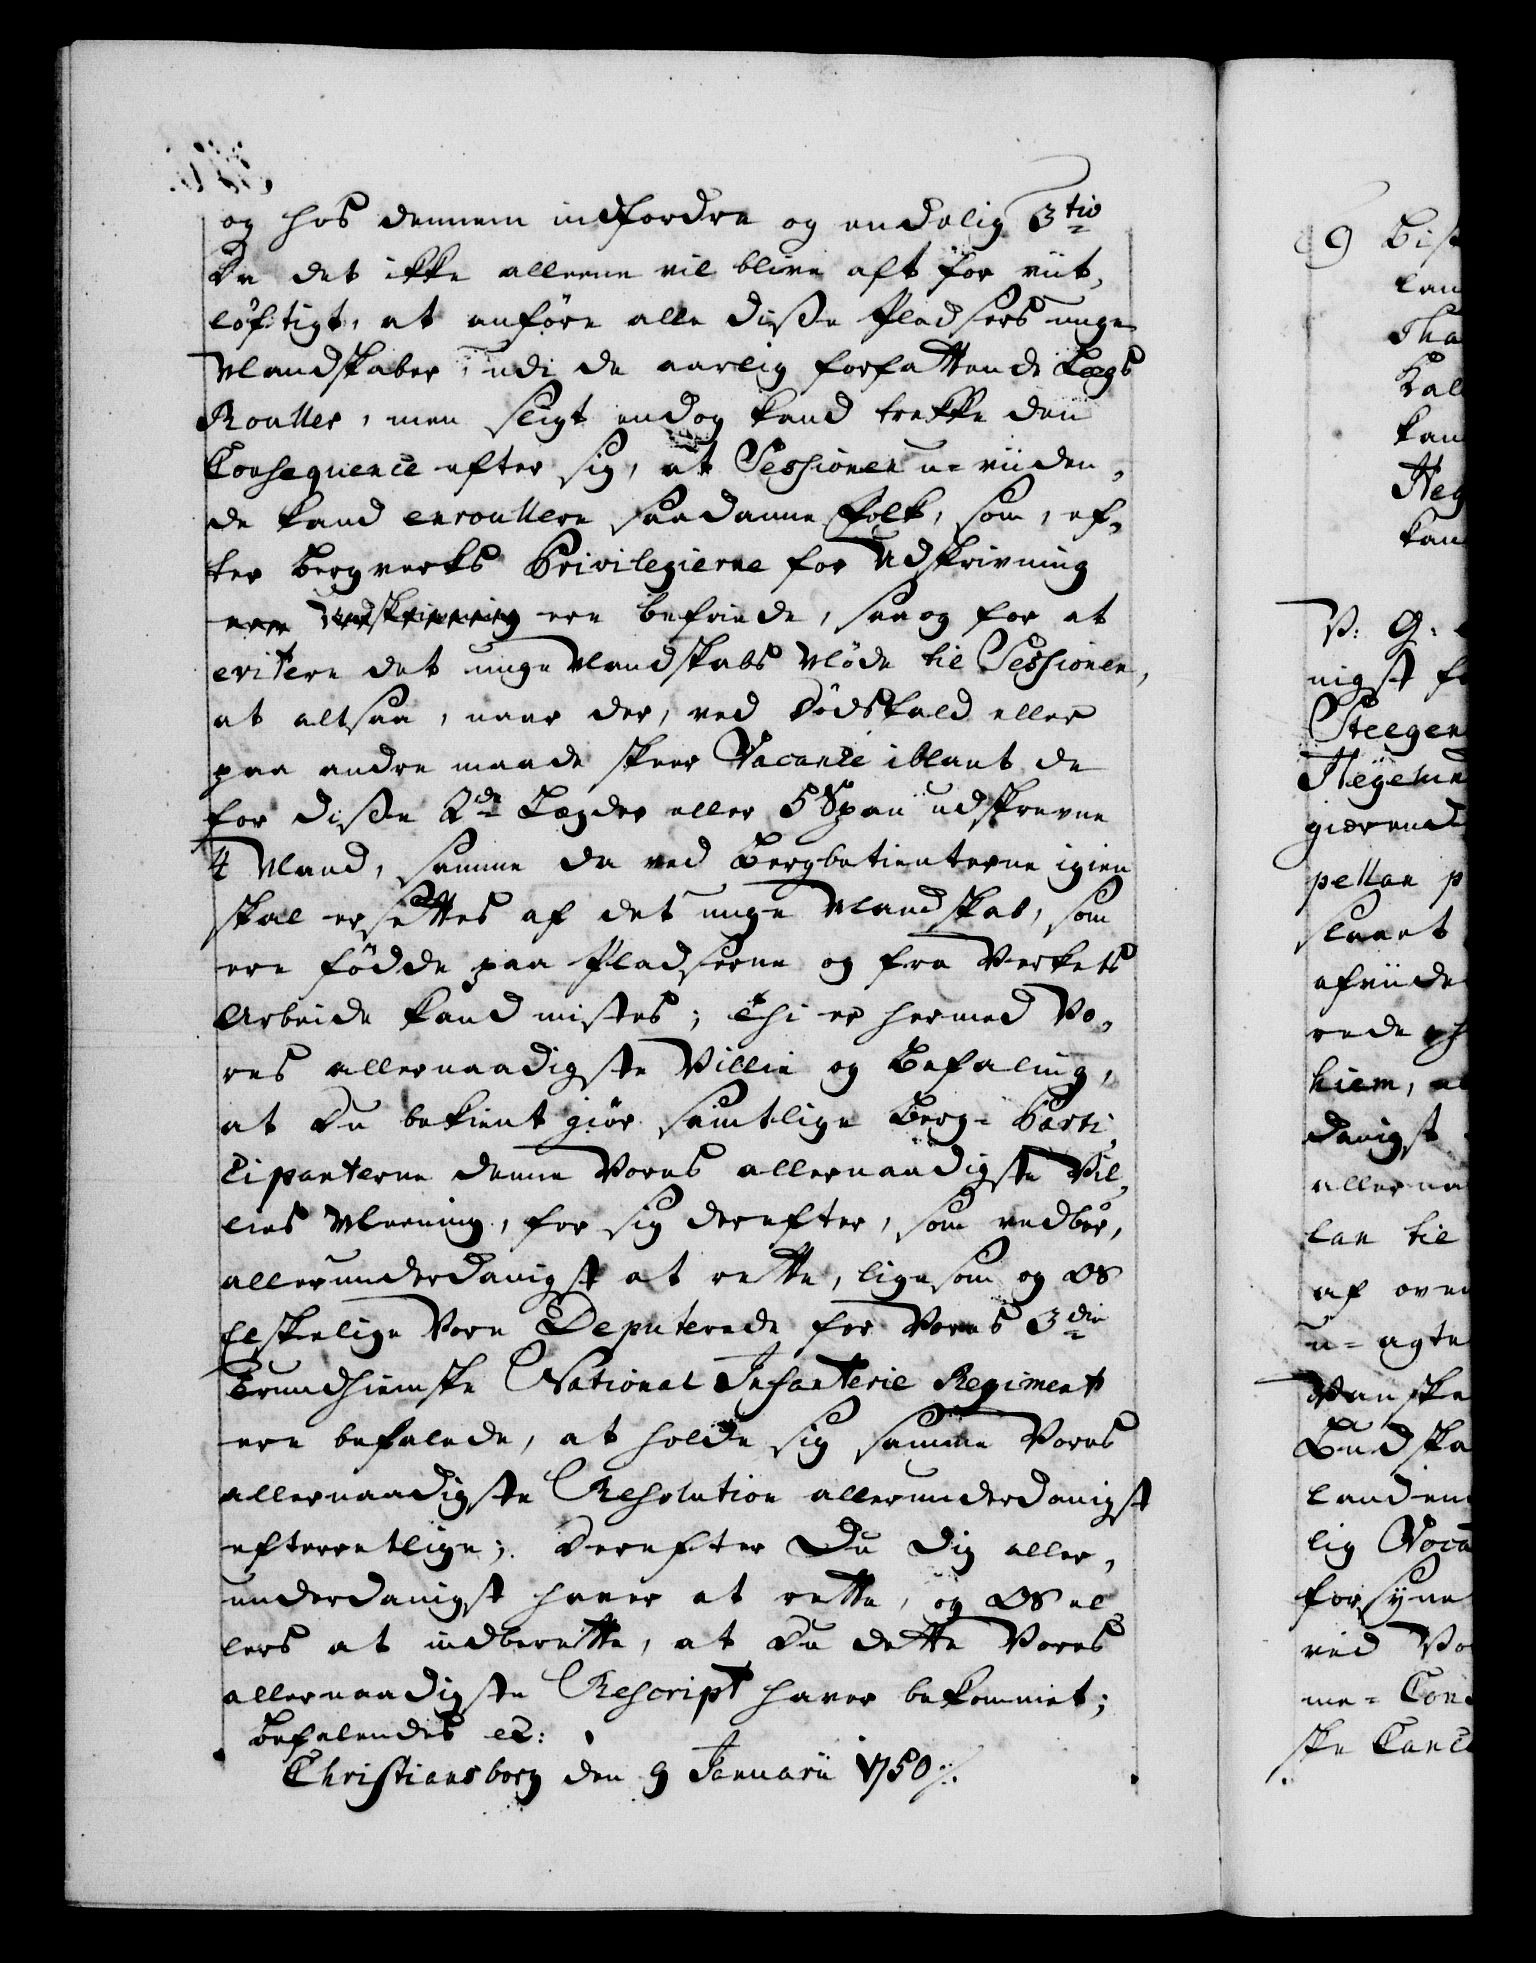 og hos dennem indfordre og endelig 3tio
Da det ikke alleene vil blive alt for viit,
løftigt, at anføre alle disse Pladsers unge
Mandskaber, udi de aarlig forfattende Lægs
Roulles, men sligt endog kand trekke den
Consequence efter sig, at Sessionen u-viiden,
de kand enroullere saadanne Folk, som, ef,
ter Bergverks Privilegierne for Udskrivning
ere befriede, saa og for at
evitere det unge Mandskabs Møde til Sessionen,
at altsaa, naar der, ved Dødsfald eller
paa andre maade skeer Vacance iblant de
for disse 2de Lægder eller 5 Span udskrevne
4 Mand, samme da ved Bergbetienterne igien
skal ersettes af det unge Mandskab, som
ere fødde paa Pladserne og fra Verkets
Arbeide kand mistes; Thi er hermed Vo,
res allernaadigste Villie og Befaling,
at Du bekient giør samtlige Berg-Parti,
cipanterne denne Vores allernaadigste Vil,
lies Meening, for sig derefter, som vedbør,
allerunderdanigst at rette, ligesom og OS
Elskelige Vore Deputerede for Vores 3die
Trundhiemske National Infanterie Regiment
ere befalede, at holde sig samme Vores
allernaadigste Resolution allerunderdanigst
efterretlige; Derefter Du Dig aller,
underdanigst haver at rette, og OS el
lers at indberette, at Du dette Vores
allernaadigste Rescript haver bekommet;
Befalendes etc:
Christiansborg den 9 Januarii 1750